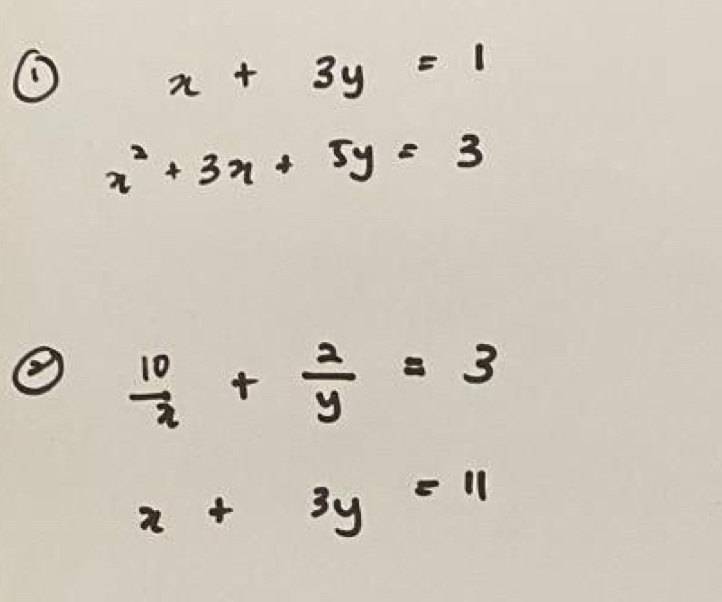 ① x + 3y = 1
x² + 3x + 5y = 3
② 10/x + 2/y = 3
x + 3y = 11